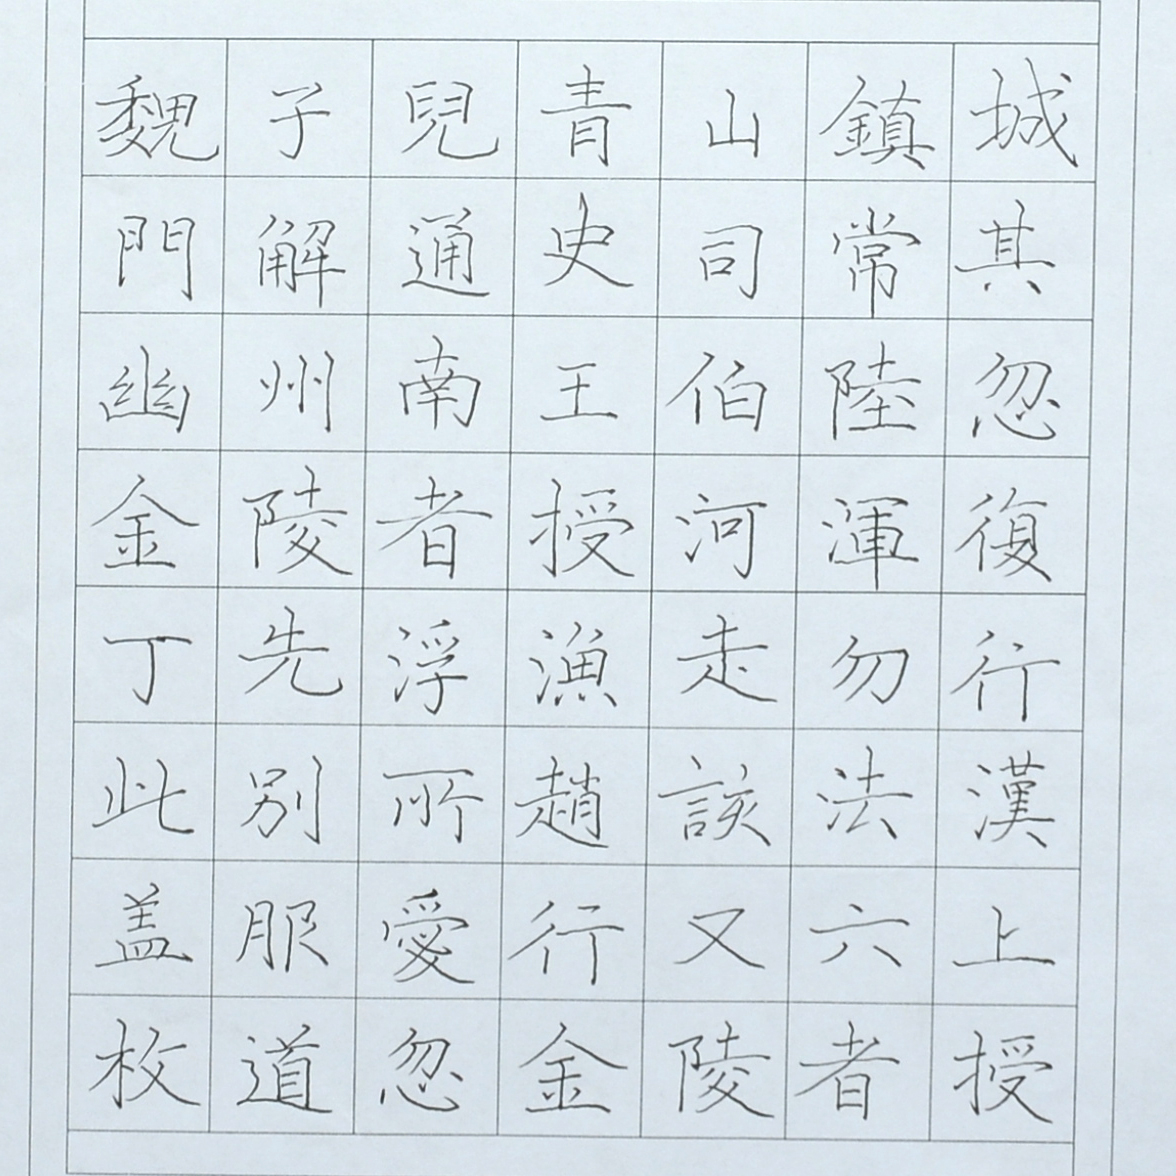 城其忽復行漢上授
鎮常陸渾勿法六者
山司伯河走該又陵
青史王授漁趙行金
兒通南者浮所愛忽
子解州陵先別服道
魏門幽金丁此盖枚